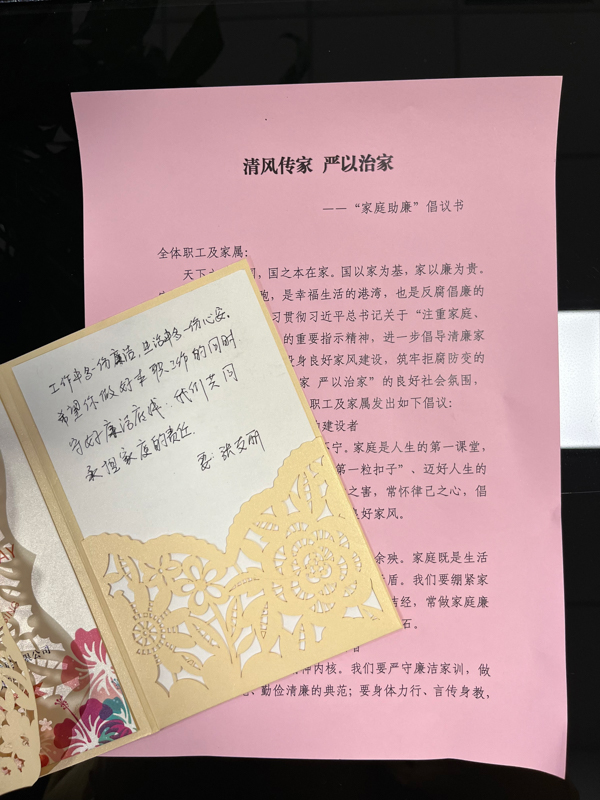 清风传家 严以治家
——“家庭助廉”倡议书
全体职工及家属:
天下之本在国,国之本在家。国以家为基,家以廉为贵。
,是幸福生活的港湾,也是反腐倡廉的
习贯彻习近平总书记关于“注重家庭、
的重要指示精神,进一步倡导清廉家
身良好家风建设,筑牢拒腐防变的
家 严以治家”的良好社会氛围,
职工及家属发出如下倡议:
建设者
宁。家庭是人生的第一课堂,
第一粒扣子”、迈好人生的
之害,常怀律己之心,倡
好家风。
余殃。家庭既是生活
盾。我们要绷紧家
经,常做家庭廉
石。
者
神内核。我们要严守廉洁家训,做
、勤俭清廉的典范;要身体力行、言传身教,
工作多一份廉洁,生活多一份心安。
希望你做好本职工作的同时
守好廉洁底线,我们共同
承担家庭的责任
限公司